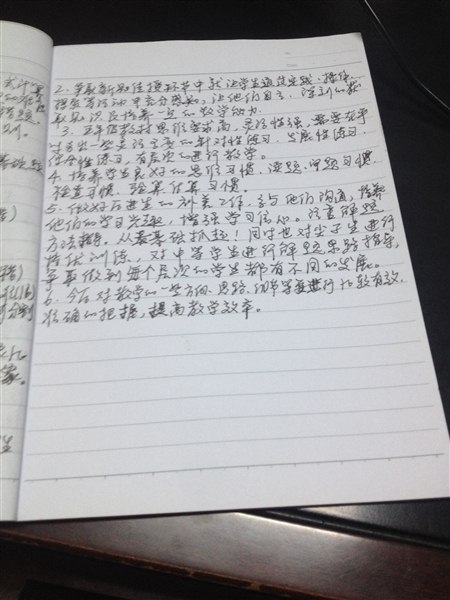 2. 争取新知传授环节中我让学生通过实践、操作、
探索等活动中充分感知，让他们自主、深刻的获
取知识及培养一定的数学能力。
3. 五年级教材思维要求高，灵活性强，需要在平
时多出一些灵活多变的针对性练习，发展性练习，
综合性练习，有层次的进行教学。
4. 培养学生良好的思维习惯，读题、审题习惯，
检查习惯，验算估算习惯。
5. 做好后进生的补差工作，多与他们沟通，培养
他们的学习兴趣，增强学习信心。认真解题
方法指导。从最基础抓起！同时也对尖子生进行
培优训练，对中等学生进行解题思路指导，
争取做到每个层次的学生都有不同的发展。
6. 今后对教学的一些方向、思路、细节等要进行比较有效、
准确的把握，提高教学效率。